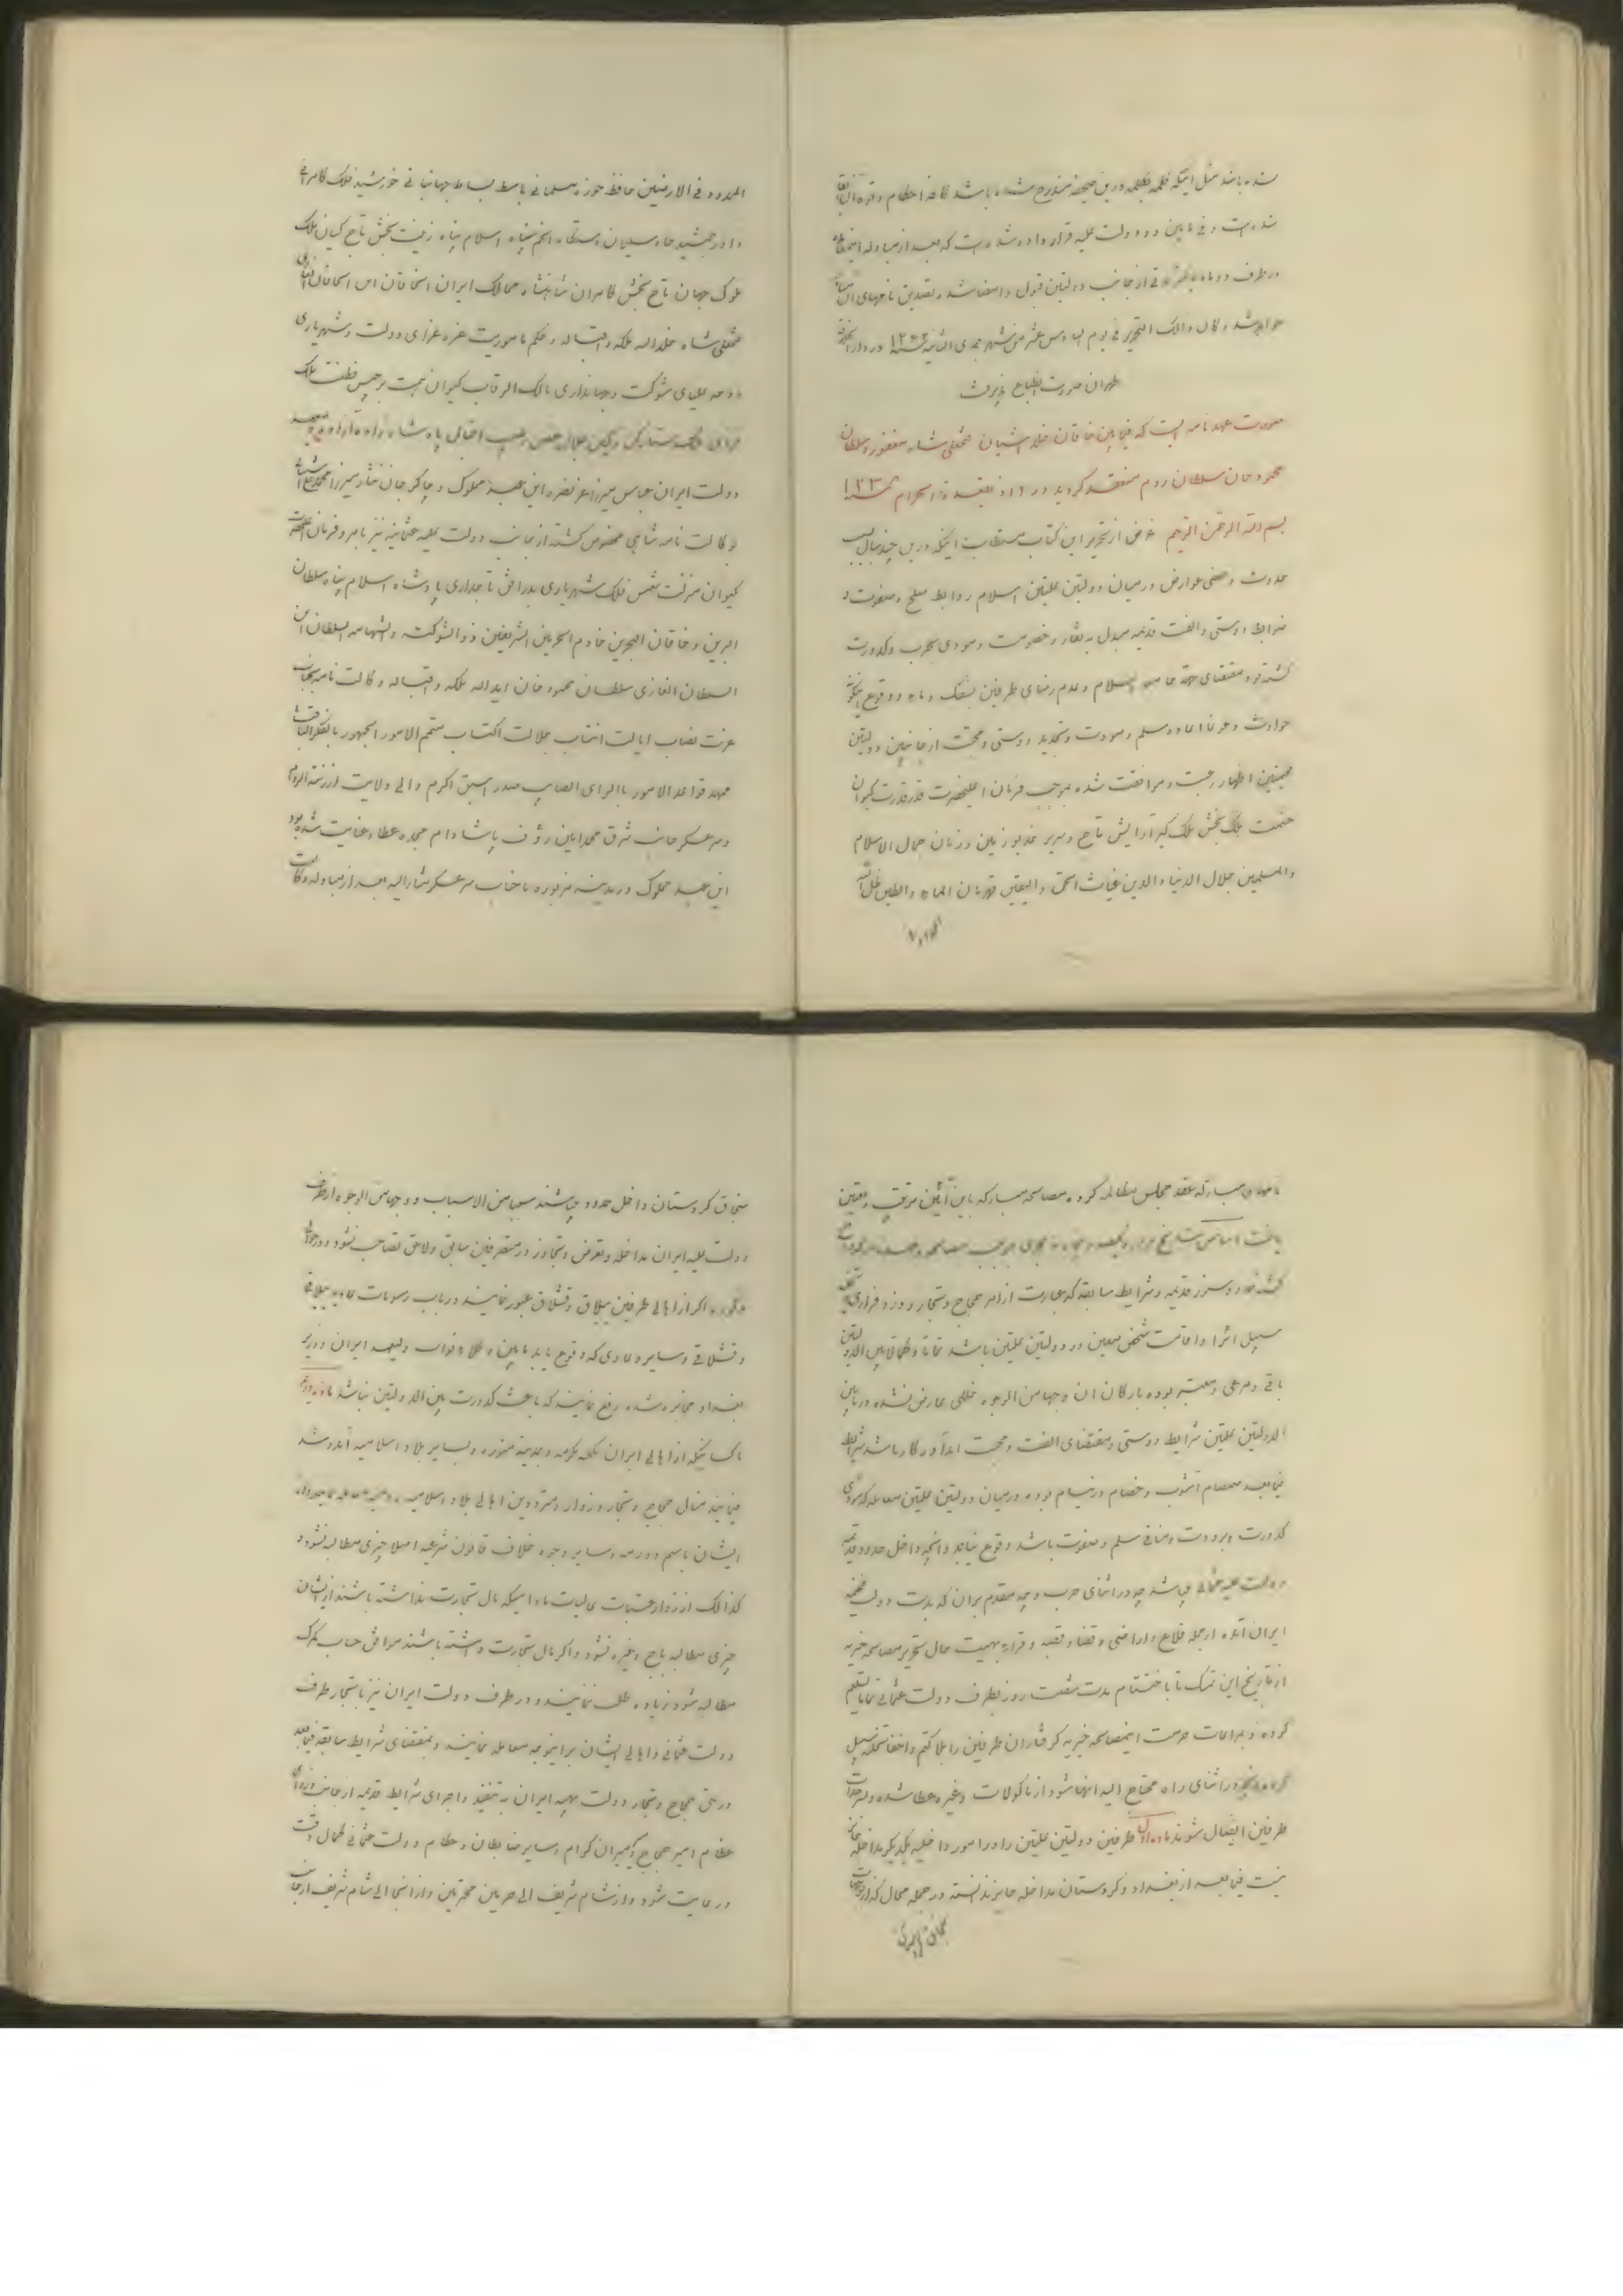 شده باشد مثل اینکه کلمه بکلمه درین صحیفه مندرج شده باشد کافه احکام و قوه آن
شده است و فی مابین دو دولت علیه قرار داده شده است که بعد از مبادله
در ظرف دو ماه از جانب دولتین قبول و امضا شده تصدیق نامهای آن
خواهد شد و کان ذالک التحریر فی یوم السادس عشر من شهر جمدی الثانیه در دار
طهران صورت انطباع پذیرفت
صورت عهد نامه ایست که فیمابین خاقان خلد اشیان فتحعلی شاه مغفور و سلطان
محمود خان سلطان روم منعقد کردید در ذیقعدة الحرام
بسم الله الرحمن الرحیم غرض از تحریر این کتاب مستطاب اینکه درین چند سال بسبب
حدوث بعضی عوارض در میان دولتین علیتین اسلام روابط صلح و صفوت و
ضوابط دوستی و الفت قدیمه مبدل به نقار و خصومت و مودی بحرب و کدورت
کشته بود بمقتضای جهة جامعه اسلام و عدم رضای طرفین بسفک دماء و وقوع اینکونه
حوادث و عرفا اعاده سلم و مودت و تجدید دوستی و محبت از جانبین دولتین
فخیمتین اظهار رغبت و موافقت شده بموجب فرمان اعلیحضرت قدرقدرت کیوان
حشمت ملک بخش ملک کیر آرایش تاج و سریر خدیو زمین و زمان جمال الاسلام
والمسلمین جلال الدنیا والدین غیاث الحق والیقین قهرمان الماء والطین ظل الله
الممدود
الممدود فی الارضین حافظ حوزه مسلمانی باسط بساط جهانبانی خورشید فلک کامرانی
داور جمشید جاه سلیمان دستکاه انجم سپاه اسلام پناه زینت بخش تاج کیان ملک
ملوک جهان تاج بخش کامران شاهنشاه ممالک ایران الخاقان ابن الخاقان
فتحعلی شاه خلدالله ملکه و اقباله و حکم مامورت غره غرای دولت و شهریاری
دوحه علیای شوکت و جهانداری مالک الرقاب کیوان همت برجیس فطنت ملک
دولت ایران عباس میرزا عز نصره این عبد مملوک و چاکر جان نثار میرزا محمد علی
بوکالت نامه شاهی مخصوص کشته از جانب دولت علیه عثمانیه نیز بامر و فرمان اعلیحضرت
کیوان منزلت شمس فلک شهریاری بدر افق تاجداری پادشاه اسلام پناه سلطان
البرین و خاقان البحرین خادم الحرمین الشریفین ذوالشوکته والشهامه السلطان ابن
السلطان الغازی سلطان محمود خان ایدالله ملکه و اقباله وکالت نامه بجناب
عزت نصاب ایالت انتساب جلالت اکتساب متمم الامور الجمهور بالفکر الثاقب
ممهد قواعد الامور بالرای الصایب صدر اسبق اکرم والی ولایت ارزنةالروم
و سرعسکر جانب شرق محمد امین رؤف پاشا دام مجده عطا و عنایت شده بود
این عبد مملوک در مدینه مزبوره با جناب سرعسکر مشارالیه بعد از مبادله وکالت
نامهای مبارکه عقد مجلس مکالمه کرده مصالحه مبارکه باین آئین مرتب و معین
دوستی قدیمه و شرایط سابقه که عبارت از امر حجاج و تجار و رد فراری و تخلیه
سبیل اسرا و اقامت شخص معین در دولتین علیتین باشد تماما و کمالا بین الدولتین
باقی و مرعی و معتبر بوده بارکان آن وجها من الوجوه خللی عارض نشده در مابین
الدولتین علیتین شرایط دوستی و مقتضای الفت و محبت ابدا در کار باشد شرایط
فیمابعد صمصام آشوب و خصام در نیام بوده در میان دولتین علیتین معامله که مودی
کدورت و برودت و منافی سلم و صفوت باشد وقوع نیابد و آنچه داخل حدود قدیمه
دولت علیه عثمانی میباشد چه در اثنای حرب و چه مقدم بران که بدست دولت فخیمه
ایران آمده از جمله قلاع و اراضی و قضا و قصبه و قراء بهیئت حال تحریر مصالحه خیریه
از تاریخ این تمسک تا باختتام مدت شصت روز بطرف دولت عثمانی تماما تسلیم
کرده و بمراعات حرمت اینمصالحه خیریه کرفتاران طرفین را بلاکتم و اخفا تخلیه سبیل
کرده در اثنای راه محتاج الیه انها شود از ماکولات و غیره عطا شده بسرحدات
طرفین ایصال شوند ماده اول طرفین دولتین علیتین را در امور داخلیه یکدیکر مداخله جایز
نیست فیمابعد از بغداد و کردستان مداخله جایز ندانسته در جمله محال که از توابعات
سنجاق کردستان داخل حدود میباشند سببا من الاسباب و وجها من الوجوه از طرف
دولت علیه ایران مداخله و تعرض و تجاوز در متصرفین سابق و لاحق تصاحب نشود و در حوالی
اکر از اهالی طرفین ییلاق و قشلاق عبور نمایند در باب رسومات عادیه ییلاقی
و قشلاقی و سایر دعاوی که وقوع یابد مابین وکلاء نواب ولیعهد ایران و وزیر
بغداد مخابره شده رفع نمایند که باعث کدورت بین الدولتین نباشد ماده دویم
کسانیکه از اهالی ایران بمکه مکرمه و مدینه منوره و بسایر بلاد اسلامیه آمد و شد
مینمایند مثال حجاج و تجار و زوار و مترددین اهالی بلاد اسلامیه
ایشان باسم دورمه و سایر وجوه خلاف قانون شرعیه اصلا چیزی مطالبه نشود و
کذالک از زوار عتبات عالیات مادامیکه مال تجارت نداشته باشند از ایشان
چیزی مطالبه باج و غیره نشود و اکر مال تجارت داشته باشند موافق حساب کمرک
مطالبه شود زیاده طلب ننمایند و در طرف دولت ایران نیز با تجار طرف
دولت عثمانی و اهالی ایشان برانوجه معامله نمایند و بمقتضای شرایط سابقه فیمابعد
در حق حجاج و تجار دولت بهیه ایران به تنفیذ و اجرای شرایط قدیمه از جانب وزرای
عظام امیر حجاج و میرمیران کرام و سایر ضابطان و حکام دولت عثمانی کمال دقت
و رعایت شود و از شام شریف الی حرمین محترمین و از آنجا الی شام شریف از جانب